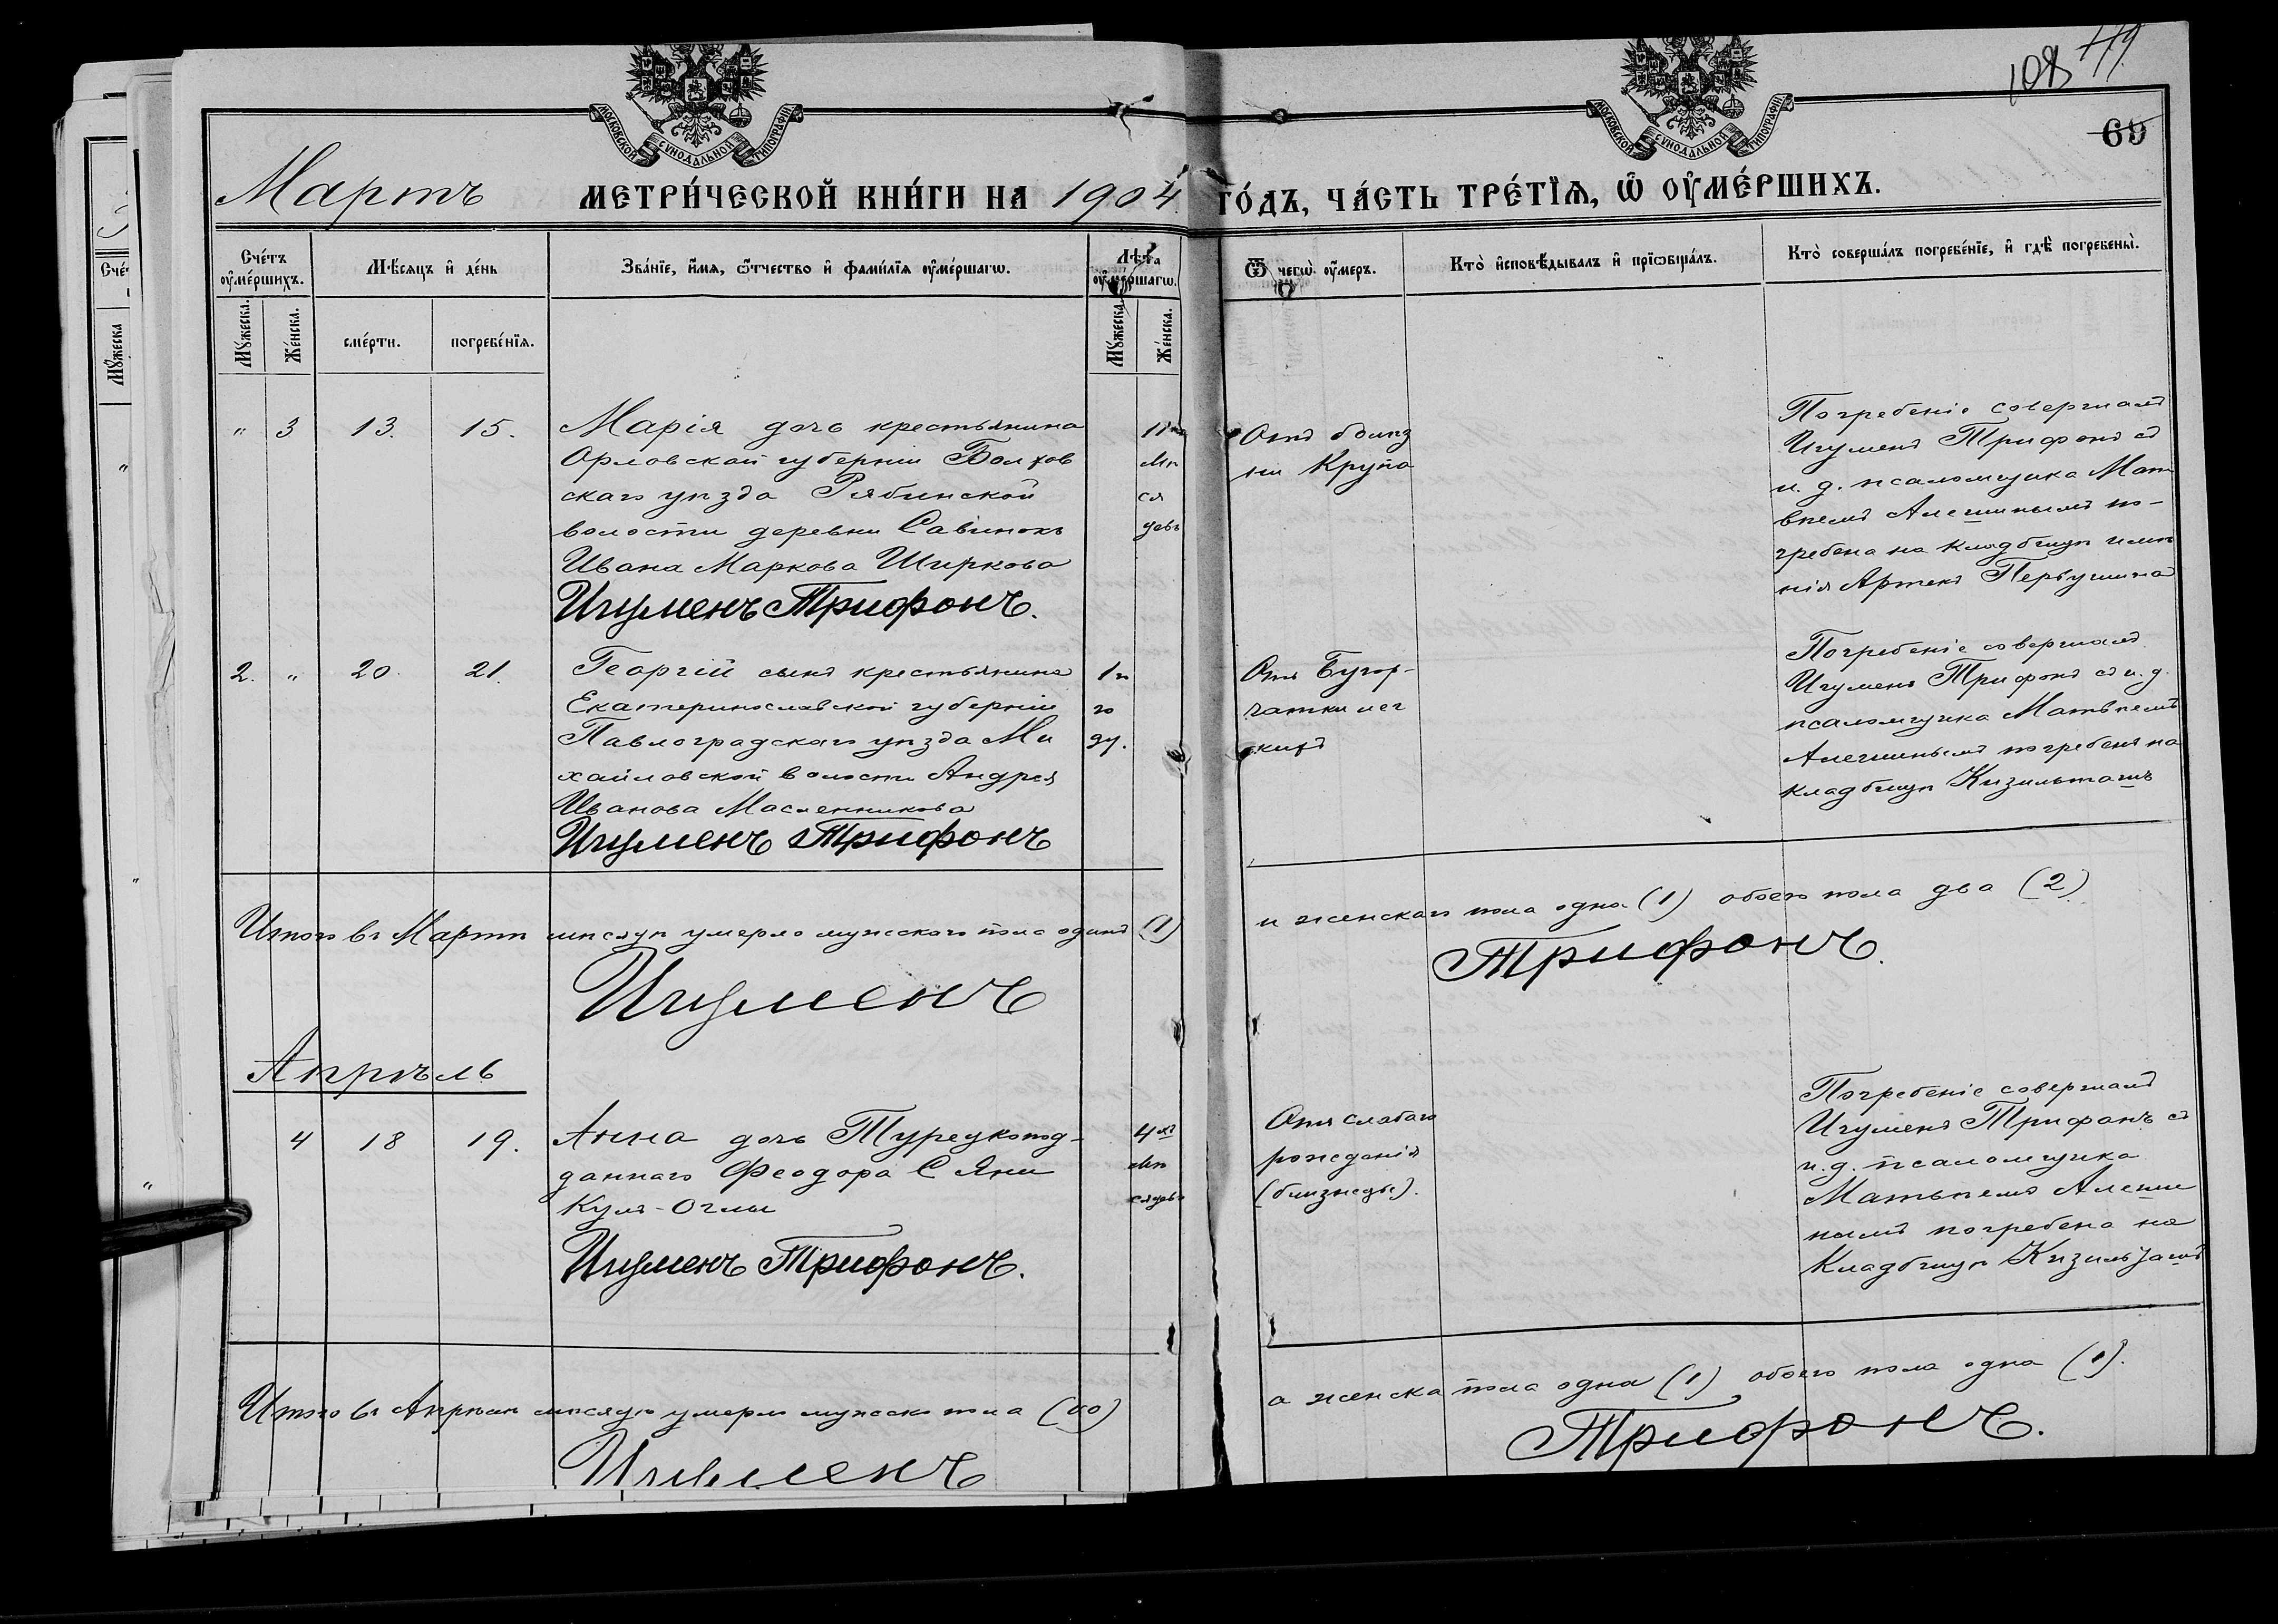 108 119
69
МОСКОВСКОЙ СѴНОДАЛЬНОЙ ТИПОГРАФІИ
МОСКОВСКОЙ СѴНОДАЛЬНОЙ ТИПОГРАФІИ
Мартъ МЕТРИ́ЧЕСКОЙ КНИ́ГИ НА 1904 ГО́ДЪ, ЧА́СТЬ ТРЕ́ТЇѦ, Ѡ҆ ОУ҆МЕ́РШИХЪ.
Сче́тъ оу҆ме́ршихъ.
Мѣ́сѧцъ и҆ де́нь
Зва́нїе, и҆́мѧ, ѿ́тчество и҆ фами́лїѧ оу҆ме́ршагѡ.
Лѣ́та оу҆ме́ршагѡ.
Ѿ чегѡ̀ оу҆́меръ.
Кто̀ и҆сповѣ́дывалъ и҆ прїѡбща́лъ.
Кто̀ соверша́лъ погребе́нїе, и҆ гдѣ̀ погребены̀.
Мꙋ́жеска. Же́нска. сме́рти. погребе́нїѧ. Мꙋ́жеска. Же́нска.
" 3 13. 15.
Марія дочь крестьянина
Орловской губерніи Болхов
скаго уѣзда Рябинской
волости деревни Савинокъ
Ивана Маркова Ширкова
Игуменъ Трифонъ.
11
мѣ
ся
цевъ
Отъ
ни Крупа
Погребеніе совершалъ
Игуменъ Трифонъ съ
и. д. псаломщика Мат
вѣемъ Алешинымъ по-
гребена на кладбищѣ имѣ
нія Артекъ Первушина
2. " 20. 21.
Георгій сынъ крестьянина
Екатеринославской губерніи
Павлоградскаго уѣзда Ми
хайловской волости Андрея
Иванова Масленникова
Игуменъ Трифонъ
1
го
ду.
Отъ Бугор-
чатки лег
кихъ
Погребеніе совершалъ
Игуменъ Трифонъ съ и. д.
псаломщика Матвѣемъ
Алешинымъ погребенъ на
кладбищѣ Кизильташъ
Итого въ Мартѣ мѣсяцѣ умерло мужескаго пола одинъ (1)
и женскаго пола одна (1) обоего пола два (2)
Игуменъ Трифонъ.
Апрѣль
4 18 19.
Анна дочь Турецкопод-
даннаго Феодора С Яни
Кула-Оглы
Игуменъ Трифонъ.
4хъ
мѣ
сяцевъ
Отъ слабаго
рожденія
(близнецы).
Погребеніе совершалъ
Игуменъ Трифонъ съ
и. д. псаломщика
Матвѣемъ Алеши
нымъ погребена на
Кладбищѣ Кизильташъ
Итого въ Апрѣлѣ мѣсяцѣ умерло мужеска пола (00)
а женска пола одна (1) обоего пола одна (1).
Игуменъ Трифонъ.